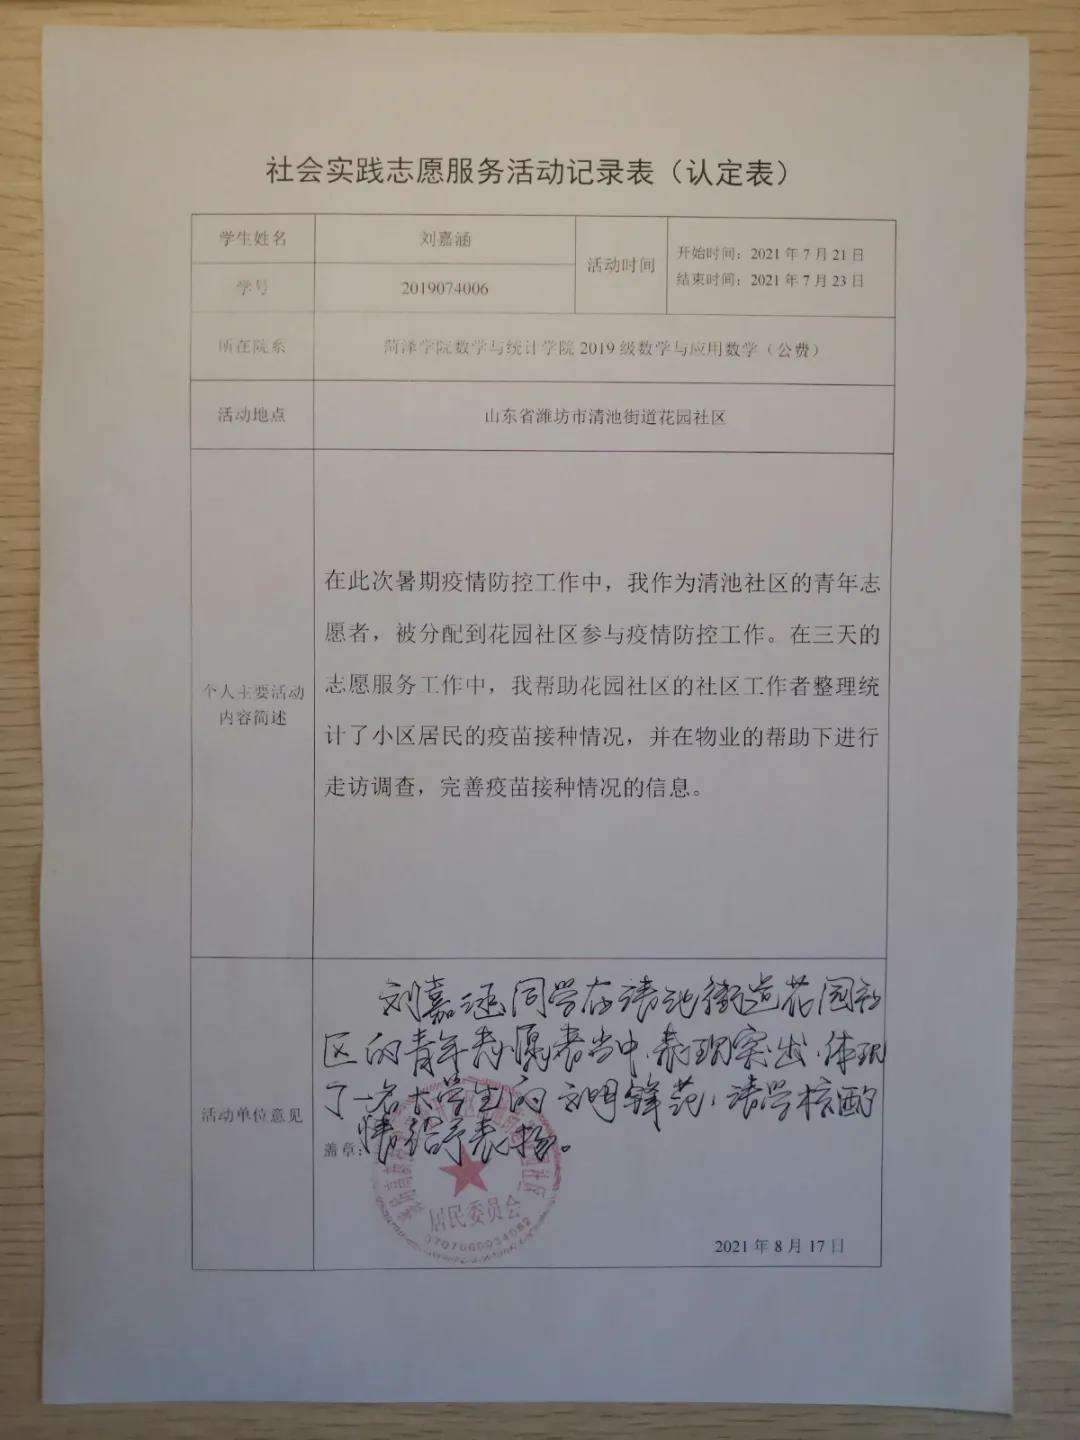 社会实践志愿服务活动记录表（认定表）
学生姓名 刘嘉涵 活动时间 开始时间：2021 年 7 月 21 日
结束时间：2021 年 7 月 23 日
学号 2019074006
所在院系 菏泽学院数学与统计学院 2019 级数学与应用数学（公费）
活动地点 山东省潍坊市清池街道花园社区
个人主要活动
内容简述
在此次暑期疫情防控工作中，我作为清池社区的青年志
愿者，被分配到花园社区参与疫情防控工作。在三天的
志愿服务工作中，我帮助花园社区的社区工作者整理统
计了小区居民的疫苗接种情况，并在物业的帮助下进行
走访调查，完善疫苗接种情况的信息。
活动单位意见
刘嘉涵同学在清池街道花园社
区的青年志愿者当中，表现突出，体现
了一名大学生的文明锋范，请学校酌
情给予表扬。
盖章：
居民委员会
3707060034082
2021 年 8 月 17 日